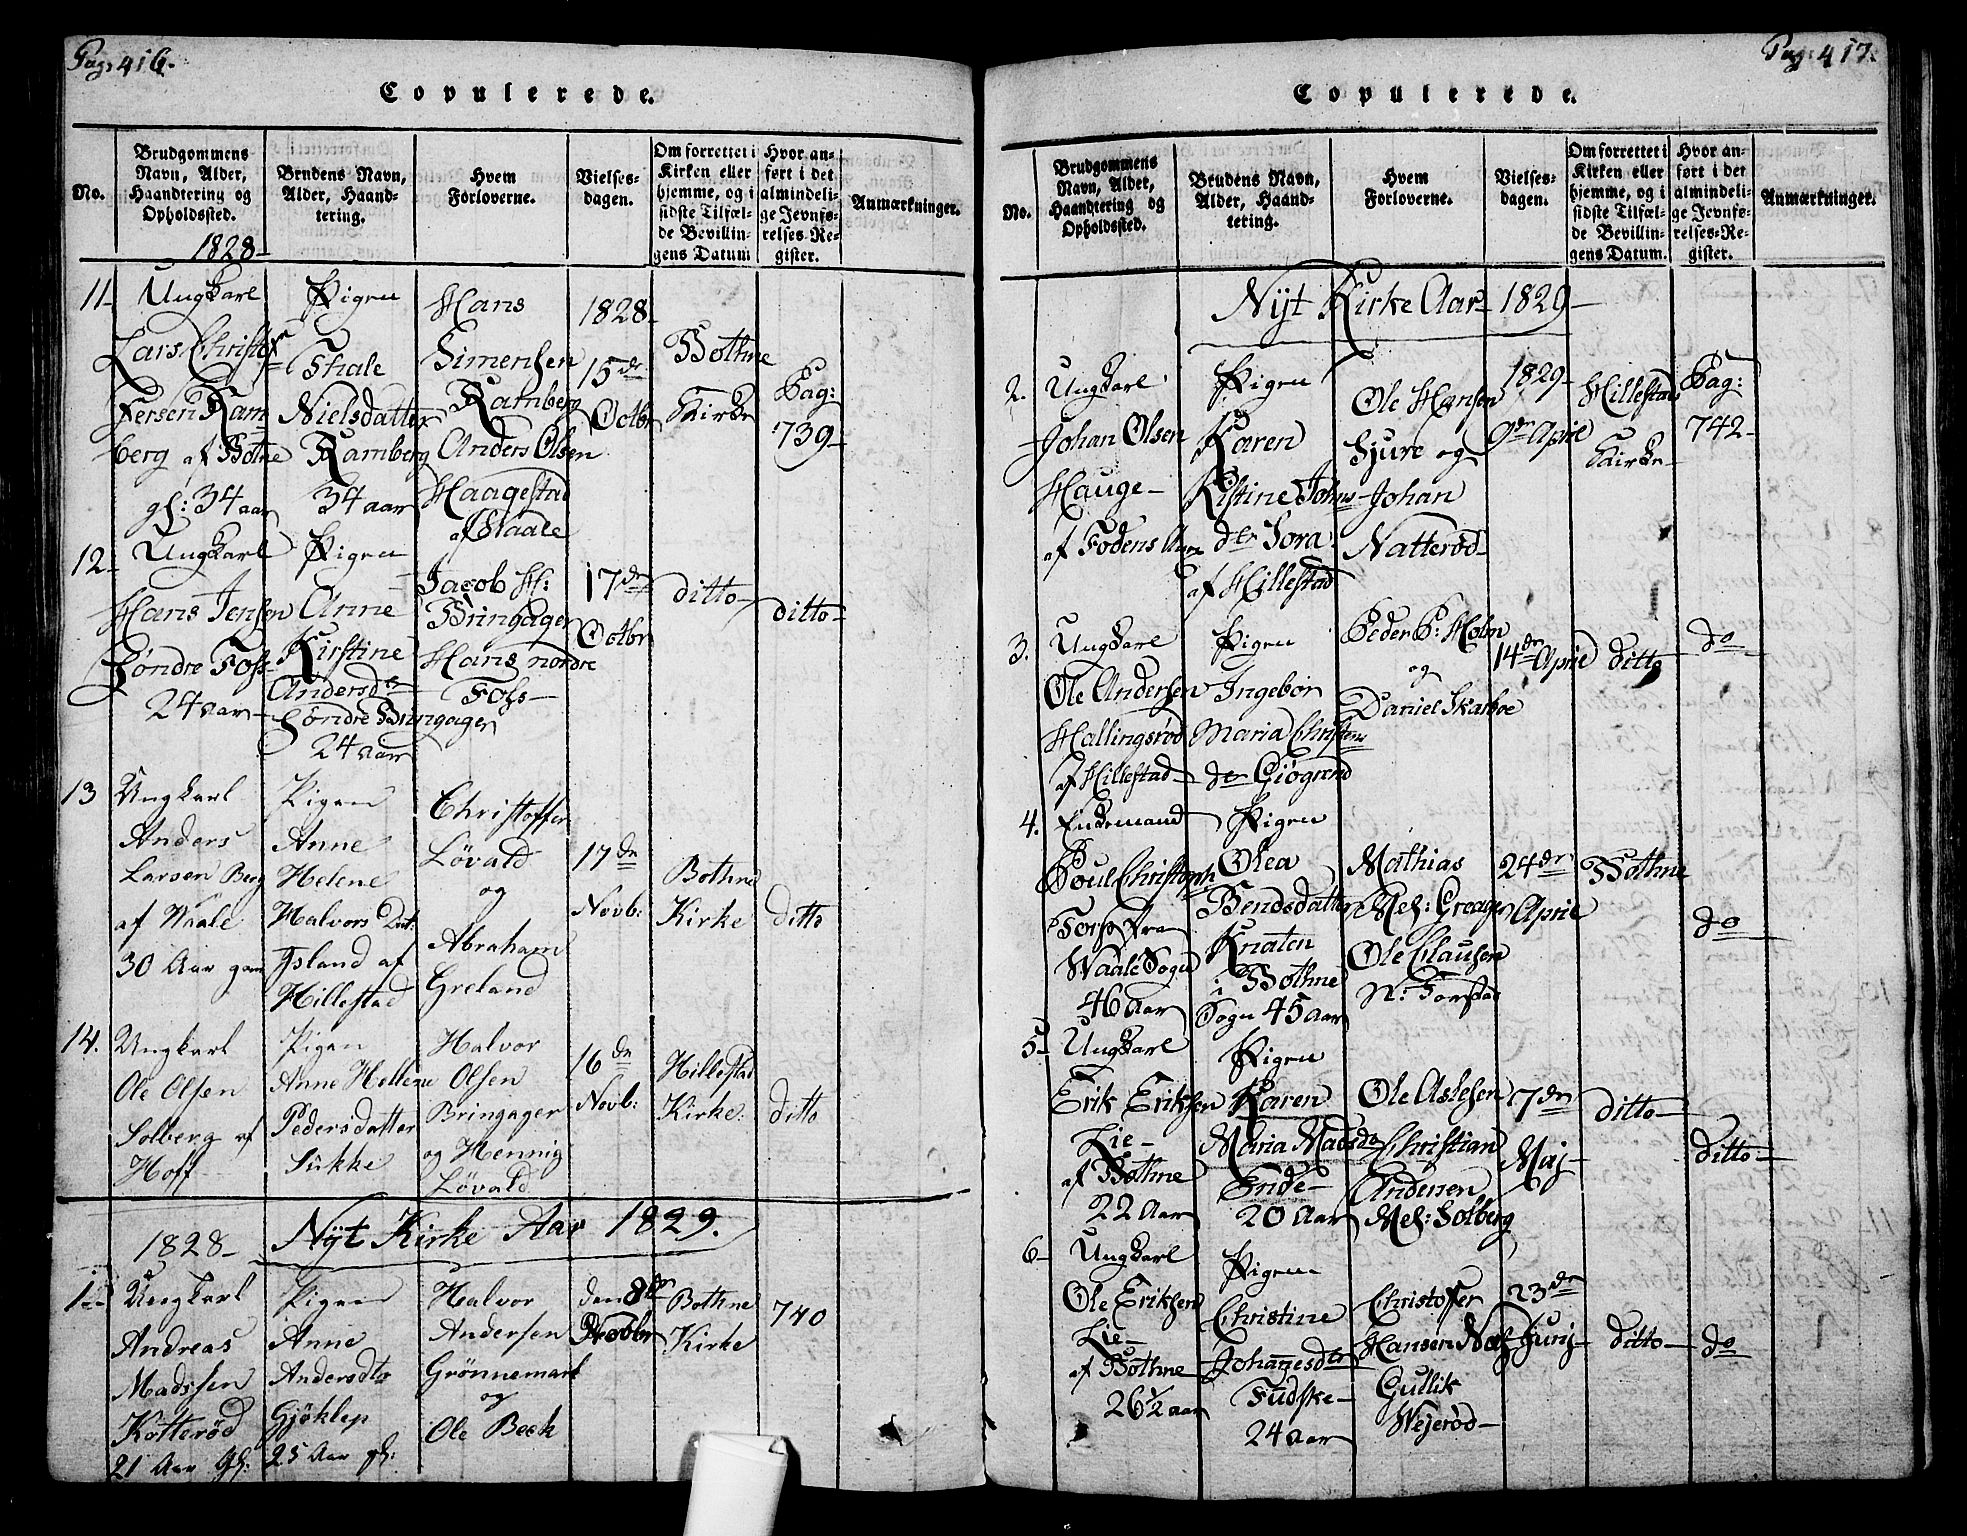 Pag: 416.
Copulerede.
No.
Brudgommens
Navn, Alder,
Haandtering og
Opholdssted.
1828-
Brudens Navn,
Alder, Haand-
tering.
Hvem
Forloverne.
Vielses-
dagen.
Om forrettet i
Kirken eller
hjemme, og i
sidste Tilfæl-
de Bevillin-
gens Datum
Hvor an-
ført i det
almindeli-
ge Jevnfø-
relses-Re-
gister.
Anmærkninger.
11-
Ungkarl
Lars Christof
fersen Ram
berg af Botne
gl: 34 aar
Pigen
Thale
Nielsdatter
Ramberg
34 aar
Hans
Simensen
Ramberg
Anders Olsen
Haagestad
af Waale
1828-
15de
Octbr
Bothne
Kirke
Pag:
739-
12-
Ungkarl
Hans Jensen
Søndre Foss
24 aar-
Pigen
Anne
Kirstine
Andersdr
Søndre Bringager
24 aar
Jacob H:
Bringager
Hans nordre
Foss-
17de
Octbr
ditto-
ditto-
13
Ungkarl
Anders
Larsen Berg
af Waale
30 Aar gam
Pigen
Anne
Helene
Halvors Dat:
Island af
Hillestad
Christoffer
Løvald
og
Abraham
Greland
17de
Novb:
Bothne
Kirke
ditto
14.
Ungkarl
Ole Olsen
Solberg af
Hoff
Pigen
Anne Hellene
Pedersdatter
Sukke
Halvor
Olsen
Bringager
og Hennig
Løvald
16de
Novb:
Hillestad
Kirke:
ditto
1828-
Nyt Kirke Aar 1829.
1
Ungkarl
Andreas
Madssen
Kotterød
21 Aar gl:
Pigen
Anne
Andersdtr
Gjøklep
25 Aar gl:
Halvor
Andersen
Grønnemark
og
Ole Beck
den 8de
Novbr
Bothne
Kirke
740
Pag: 417.
Copulerede.
No.
Brudgommens
Navn, Alder,
Haandtering og
Opholdssted.
Brudens Navn,
Alder, Haand-
tering.
Hvem
Forloverne.
Vielses-
dagen.
Om forrettet i
Kirken eller
hjemme, og i
sidste Tilfæl-
de Bevillin-
gens Datum.
Hvor an-
ført i det
almindeli-
ge Jevnfø-
relses-Re-
gister.
Anmærkninger.
Nyt Kirke Aar- 1829-
2.
Ungkarl
Johan Olsen
Hauge-
af Fodens
Pigen
Karen
Kistine Johns
dtr Sora
af Hillestad
Ole Hansen
Sjure og
Johan
Natterød-
1829-
9de April
Hillestad
Kirke-
Pag:
742-
3.
Ungkarl
Ole Andersen
Hallingsrød
af Hillestad-
Pigen
Ingebor
Maria Christens
dtr Giøgrend
Peder P: Holm
og
Daniel Skarboe
14de April
ditto
do
4.
Enkemand
Poul Christoph
Forp fra
Waale Sogn
46 Aar
Pigen
Olea
Bendsdatter
Knaten
i Bothne
Sogn 45 Aar
Mathias
Mel: Greager
Ole Clausen
N: Forstad
24de
April
Bothne
do
5-
Ungkarl
Erik Eriksen
Lie-
af Bothne
22 Aar
Pigen
Karen
Maria Madsdr
Ende-
20 Aar
Ole Aslesen
Christian
Andersen
Mel: Solberg
7de
Maj-
ditto-
ditto-
6-
Ungkarl
Ole Eriksen
Lie-
af Bothne
26 1/2 aar
Pigen
Christine
Johannesdtr
Fudske-
24 aar
Christofer
Hansen
Gullik
Wejerød-
23de
Junij-
ditto-
do